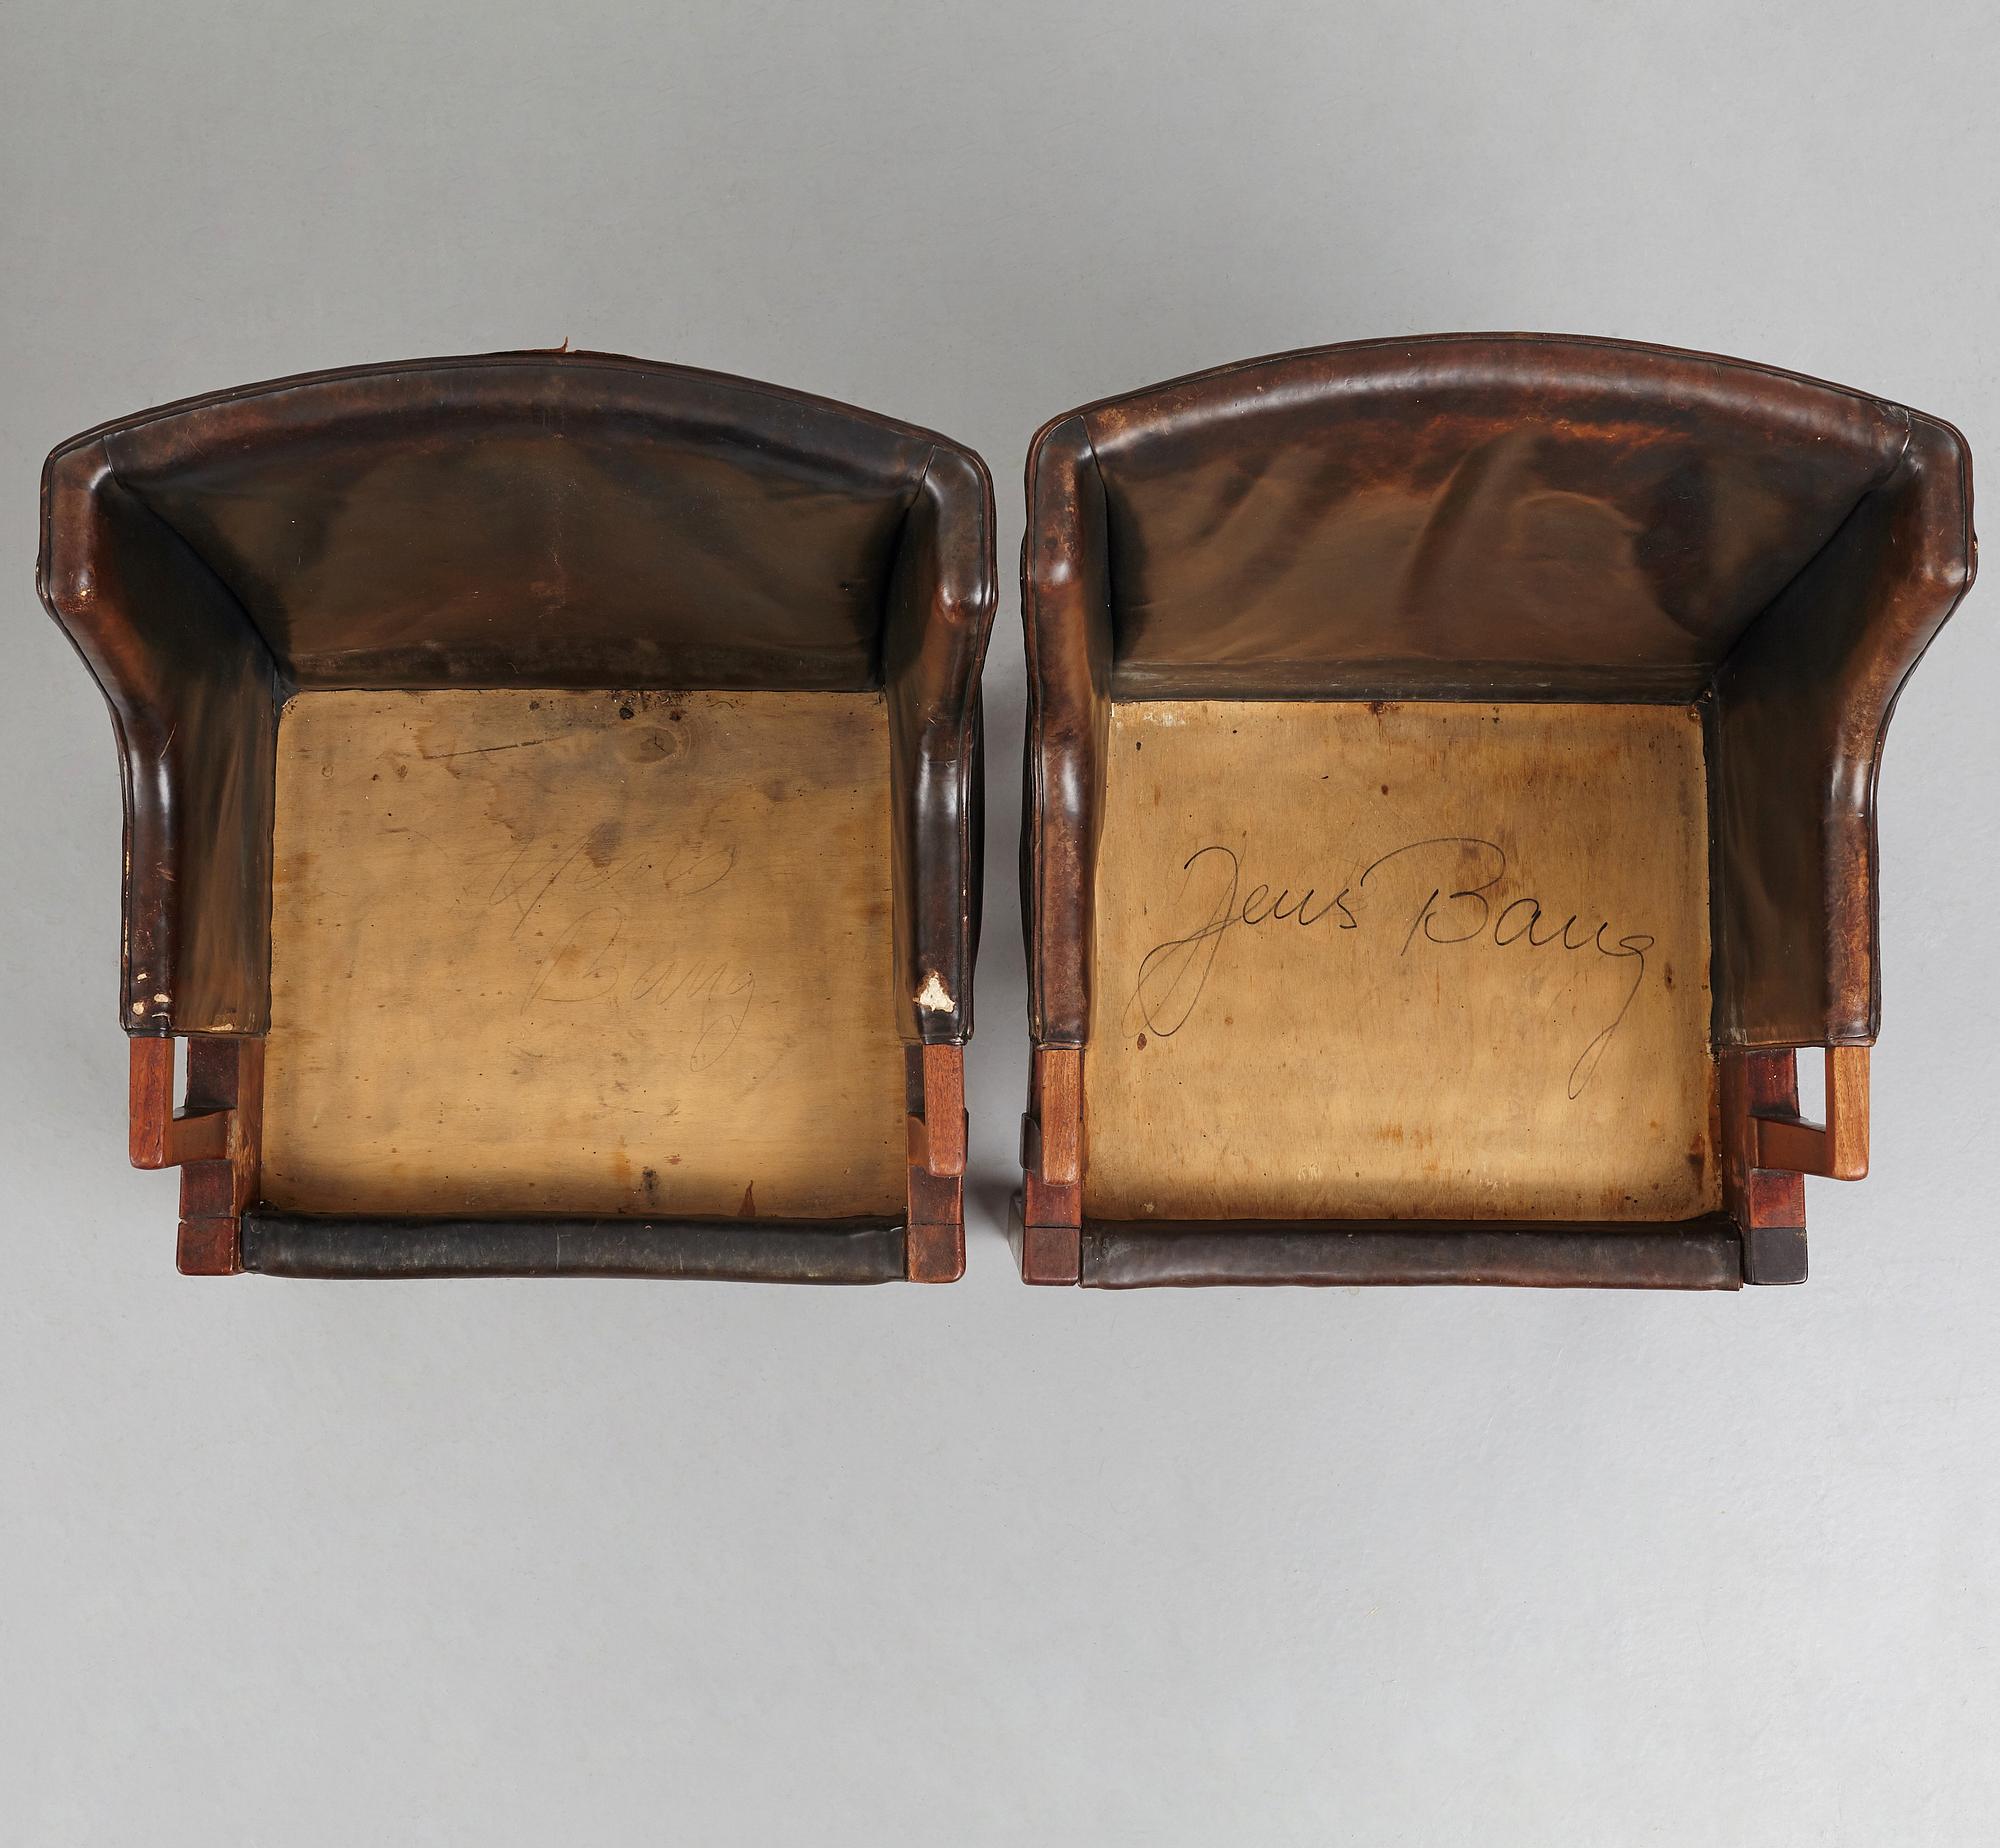 Jens
Bang
Jens Bang